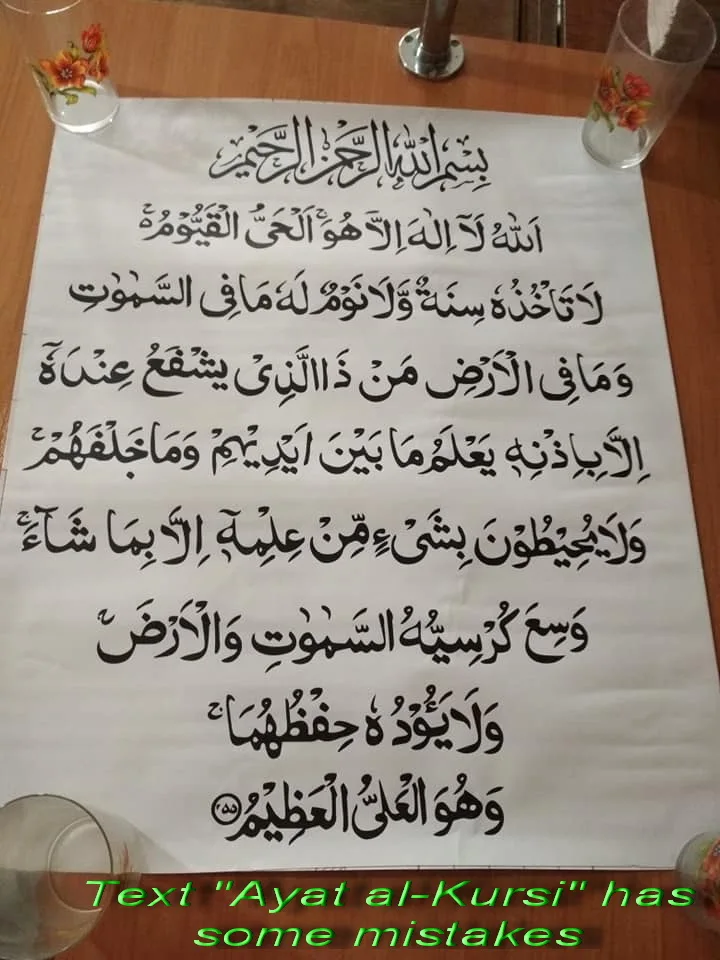 بِسْمِ اللهِ الرَّحْمٰنِ الرَّحِيْمِ
اَللهُ لَآ اِلٰهَ اِلَّا هُوَۚ اَلْحَىُّ الْقَيُّوْمُ ەۚ
لَا تَاْخُذُهٗ سِنَةٌ وَّلَا نَوْمٌ لَهٗ مَا فِى السَّمٰوٰتِ
وَمَا فِى الْاَرْضِ مَنْ ذَا الَّذِىْ يَشْفَعُ عِنْدَهٗٓ
اِلَّا بِاِذْنِهٖ يَعْلَمُ مَا بَيْنَ اَيْدِيْهِمْ وَمَا خَلْفَهُمْۚ
وَلَا يُحِيْطُوْنَ بِشَىْءٍ مِّنْ عِلْمِهٖٓ اِلَّا بِمَا شَآءَۚ
وَسِعَ كُرْسِيُّهُ السَّمٰوٰتِ وَالْاَرْضَۚ
وَلَا يَـُٔوْدُ هٗ حِفْظُهُمَاۚ
وَهُوَ الْعَلِىُّ الْعَظِيْمُ ﴿٢٥٥﴾
Text "Ayat al-Kursi" has
some mistakes